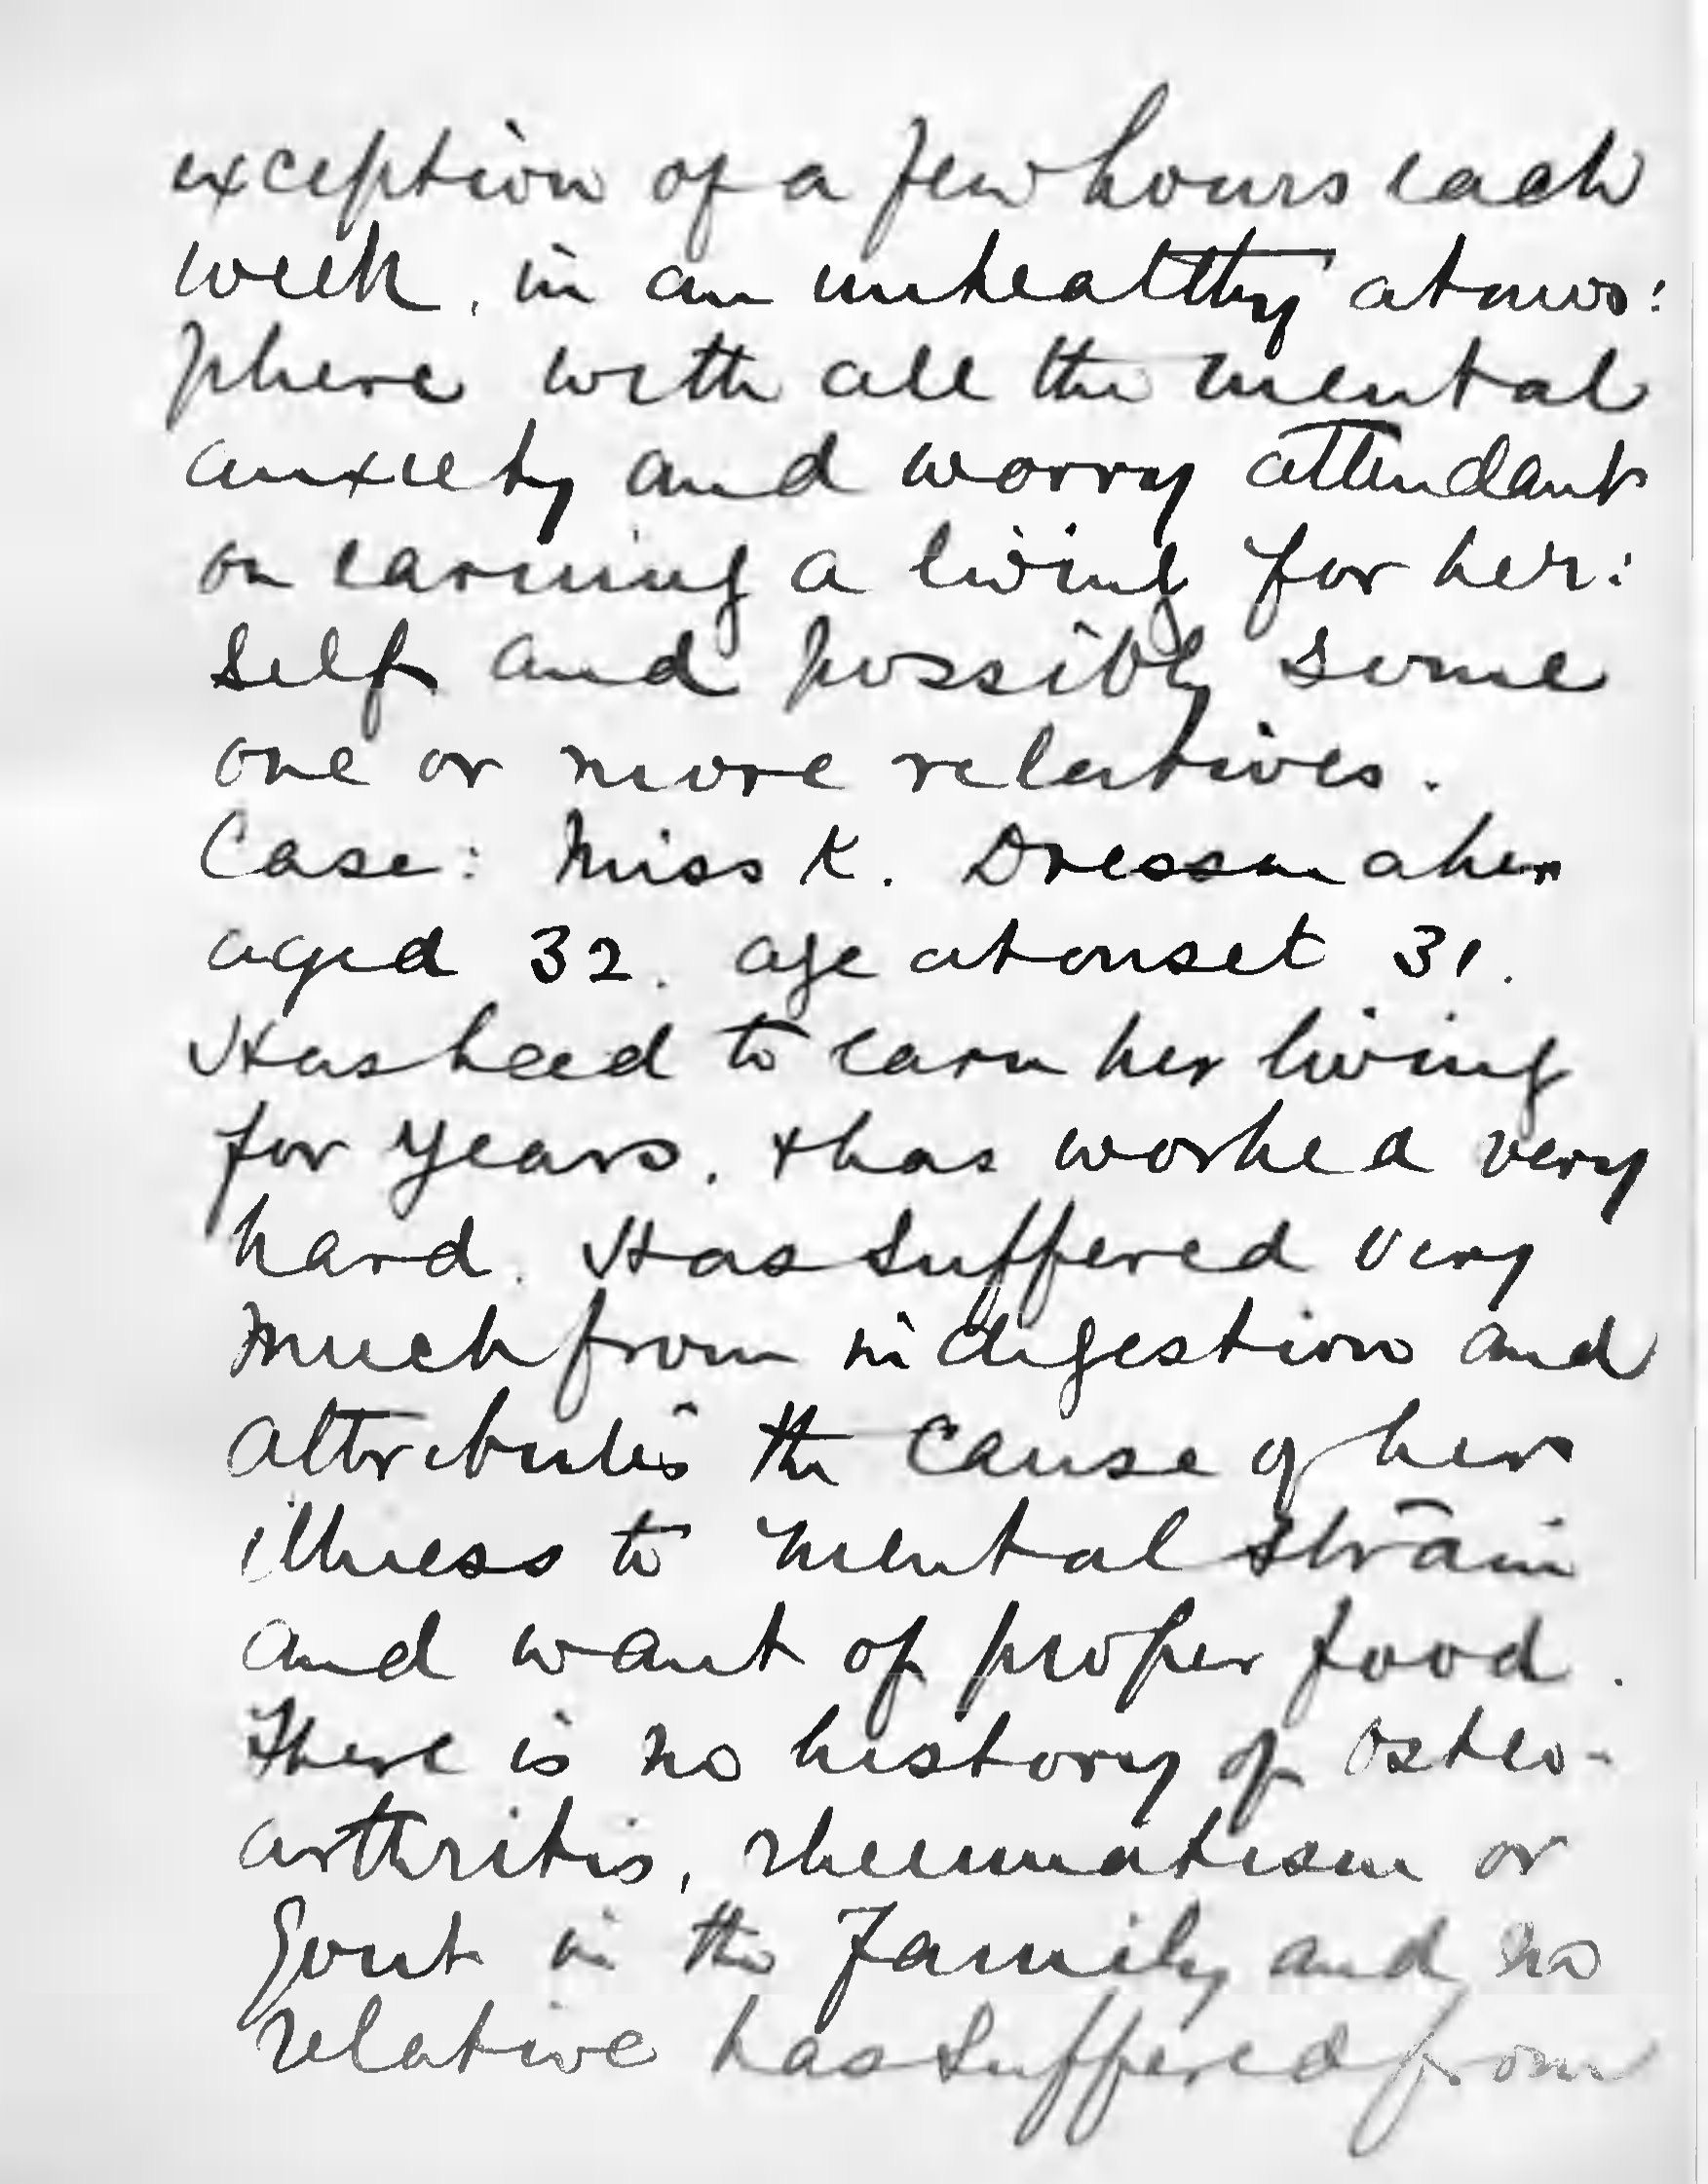 exception of a few hours each
week, in an unhealthy atmos:
phere with all the mental
anxiety and worry attendant
on earning a living for her:
self and possibly some
one or more relatives.
Case: Miss K. Dressmaker
aged 32. age at onset 31.
Has had to earn her living
for years, + has worked very
hard. Has suffered very
much from indigestion and
attributes the cause of her
illness to mental strain
and want of proper food.
There is no history of osteo-
arthritis, rheumatism or
Gout in the Family and no
relative has suffered from